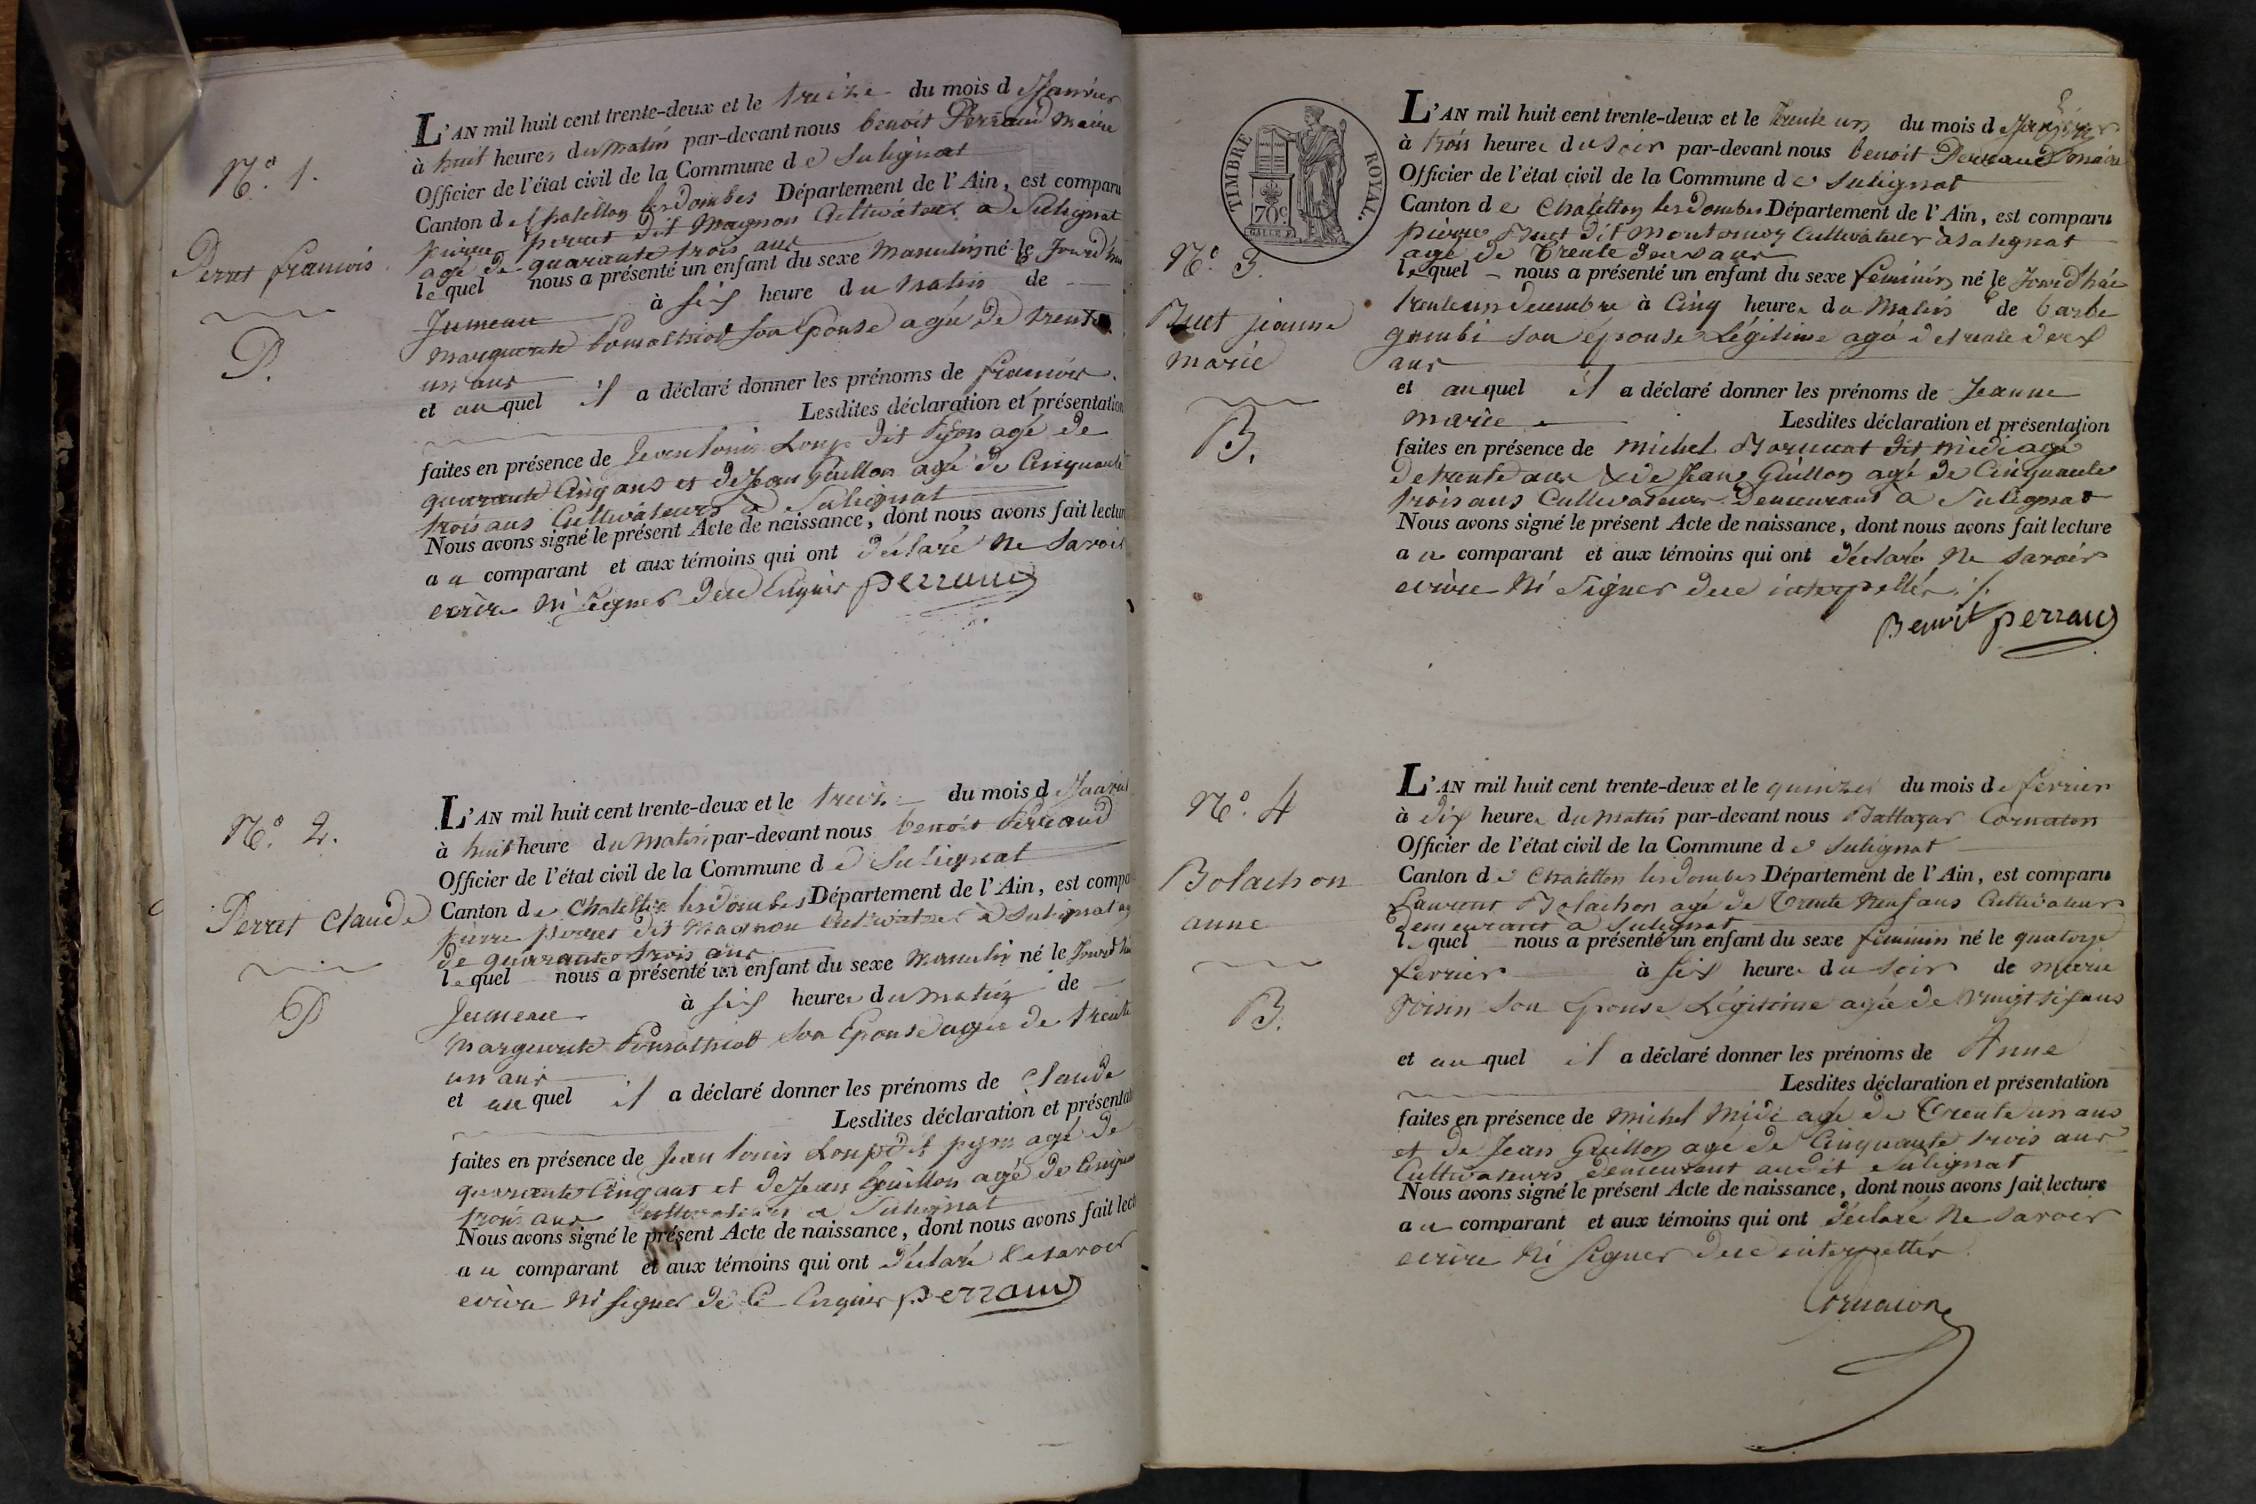 N.o 1.
Perret francois
P.
L'AN mil huit cent trente-deux et le treize du mois de Janvier
à huit heures du matin par-devant nous benoit Perraud maire
Officier de l'état civil de la Commune de Sulignat
Canton de Chatillon les dombes Département de l'Ain, est comparu
pierre perret dit Magnon Cultivateur a Sulignat
agé de quarante trois ans
lequel nous a présenté un enfant du sexe Masculin né le Jourd'hui
Jumeau à six heure du Matin de
Marguerite son Epouse agée de trente
un ans
et auquel il a déclaré donner les prénoms de francois.
Lesdites déclaration et présentation
faites en présence de Jean louis Loup dit agé de
quarante Cinq ans et de Jean Guillon agé de Cinquante
trois ans Cultivateurs a Sulignat
Nous avons signé le présent Acte de naissance, dont nous avons fait lecture
au comparant et aux témoins qui ont déclaré Ne Savoir
ecrire Ni Signer perraud
N.o 2.
Perret Claude
P
L'AN mil huit cent trente-deux et le treize du mois de Janvier
à huit heure du Matin par-devant nous benoit Perraud
Officier de l'état civil de la Commune de Sulignat
Canton de Chatillon les dombes Département de l'Ain, est compa
pierre perret dit Magnon Cultivateur à Sulignat agé
de quarante trois ans
lequel nous a présenté un enfant du sexe Masculin né le Jourd'hui
Jumeau à six heures du Matin de
Marguerite son Epouse agée de trente
un ans
et auquel il a déclaré donner les prénoms de Claude
Lesdites déclaration et présentat
faites en présence de Jean louis Loup dit agé de
quarante Cinq ans et de Jean Guillon agé de Cinquante
trois ans Cultivateurs a Sulignat
Nous avons signé le présent Acte de naissance, dont nous avons fait lect
au comparant et aux témoins qui ont déclaré Ne savoir
ecrire Ni signer de Ce Enquis perraud
TIMBRE ROYAL.
70c
N.o 3.
jeanne
marie
B.
L'AN mil huit cent trente-deux et le Trente un du mois de Janvier
à trois heures du soir par-devant nous benoit Perraud maire
Officier de l'état civil de la Commune de Sulignat
Canton de Chatillon les dombes Département de l'Ain, est comparu
pierre dit Cultivateur à Sulignat
agé de Trente deux ans
lequel nous a présenté un enfant du sexe feminin né le Jourd'hui
trente un decembre à Cinq heures du Matin de barbe
son épouse Légitime agé de trente deux
ans
et auquel il a déclaré donner les prénoms de Jeanne
Marie Lesdites déclaration et présentation
faites en présence de Michel dit Midi agé
de trente ans & de Jean Guillon agé de Cinquante
trois ans Cultivateurs Demeurant a Sulignat
Nous avons signé le présent Acte de naissance, dont nous avons fait lecture
au comparant et aux témoins qui ont déclaré Ne savoir
ecrire Ni Signer de ce interpellés ./.
Benoit perraud
N.o 4
Bolachon
anne
B.
L'AN mil huit cent trente-deux et le quinze du mois de fevrier
à dix heures du matin par-devant nous Baltazar Cornaton
Officier de l'état civil de la Commune de Sulignat
Canton de Chatillon les dombes Département de l'Ain, est comparu
Laurent Bolachon agé de Trente Neuf ans Cultivateur
demeurant à Sulignat
lequel nous a présenté un enfant du sexe feminin né le quatorze
fevrier à six heures du soir de marie
Voisin son Epouse Légitime agée de vingt six ans
et auquel il a déclaré donner les prénoms de Anne
Lesdites déclaration et présentation
faites en présence de Michel Midi agé de Trente un ans
et de Jean Guillon agé de Cinquante trois ans
Cultivateurs demeurant audit Sulignat
Nous avons signé le présent Acte de naissance, dont nous avons fait lecture
au comparant et aux témoins qui ont déclaré Ne savoir
ecrire Ni Signer de ce interpellés
Cornaton